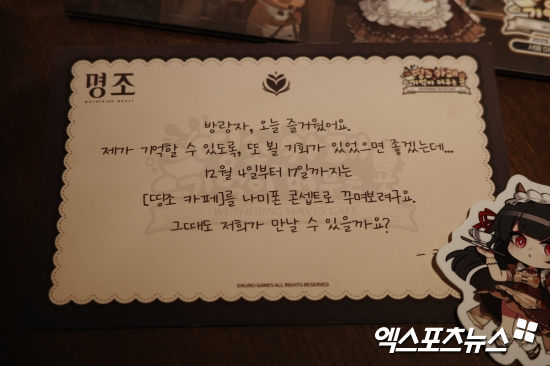 명조
WUTHERING WAVES
방랑자, 오늘 즐거웠어요.
제가 기억할 수 있도록, 또 뵐 기회가 있었으면 좋겠는데...
12월 4일부터 17일까지는
[띵조 카페]를 나미폰 콘셉트로 꾸며보려구요.
그때도 저희가 만날 수 있을까요?
©KURO GAMES ALL RIGHTS RESERVED
엑스포츠뉴스